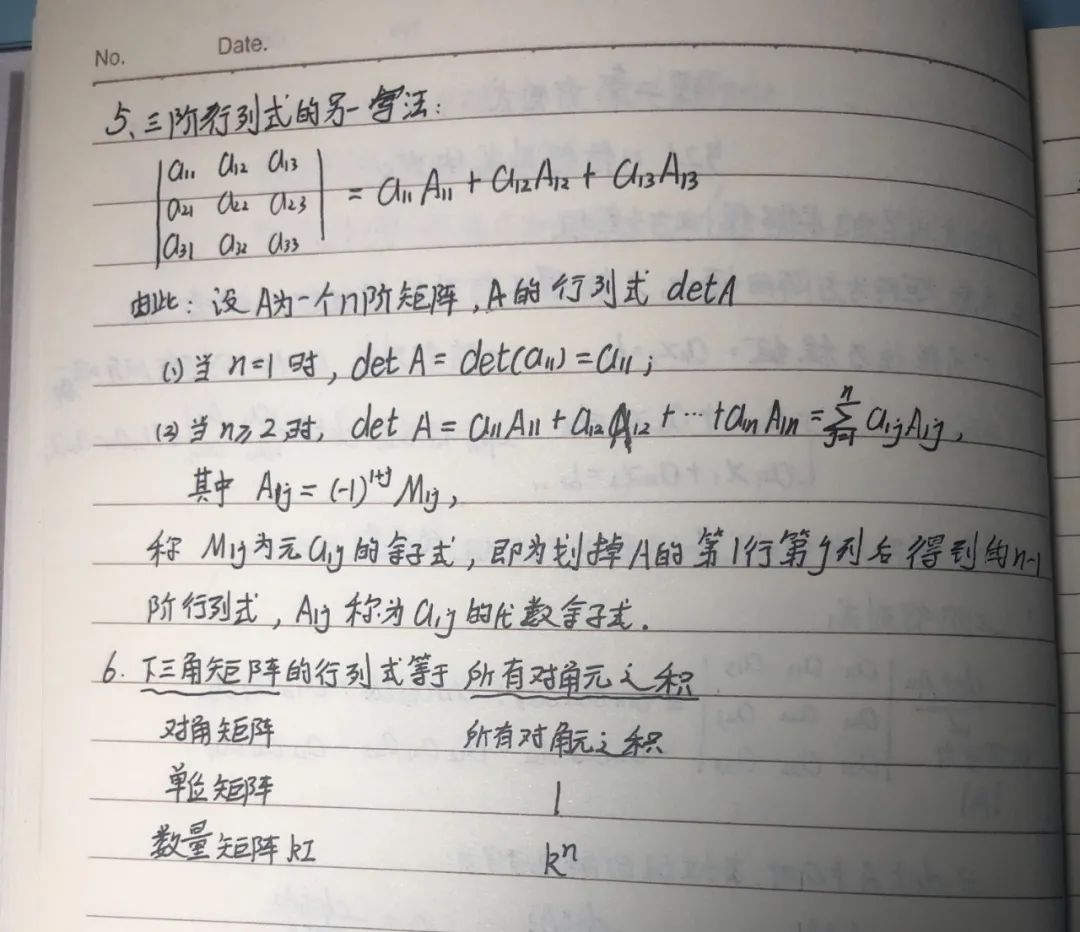 No. Date.
5、三阶行列式的另一写法:
|a₁₁ a₁₂ a₁₃|
|a₂₁ a₂₂ a₂₃| = a₁₁A₁₁ + a₁₂A₁₂ + a₁₃A₁₃
|a₃₁ a₃₂ a₃₃|
由此: 设A为一个n阶矩阵, A的行列式 detA
(1) 当 n=1 时, det A = det(a₁₁) = a₁₁;
(2) 当 n≥2 时, det A = a₁₁A₁₁ + a₁₂A₁₂ + ⋯ + a₁ₙA₁ₙ = ∑ⁿⱼ₌₁ a₁ⱼA₁ⱼ,
其中 A₁ⱼ = (-1)¹⁺ʲ M₁ⱼ,
称 M₁ⱼ为元a₁ⱼ的余子式, 即为划掉A的第1行第j列后得到的n-1
阶行列式, A₁ⱼ称为a₁ⱼ的代数余子式.
6. 下三角矩阵的行列式等于所有对角元之积
对角矩阵 所有对角元之积
单位矩阵 1
数量矩阵kI kⁿ